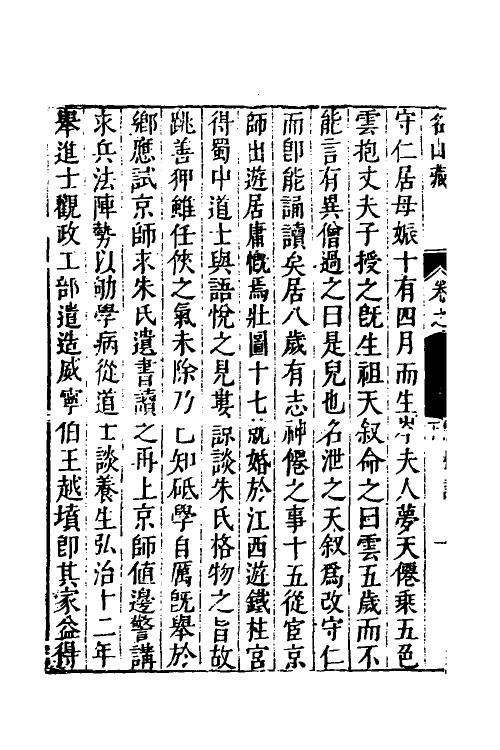 名山藏
卷之
守仁居母娠十有四月而生岑夫人夢天僊乘五色
雲抱丈夫子授之旣生祖天叙命之曰雲五歲而不
能言有異僧過之曰是兒也名泄之天叙爲改守仁
而卽能誦讀矣居八歲有志神僊之事十五從宦京
師出遊居庸慨焉壯圖十七就婚於江西遊鐵柱宮
得蜀中道士與語悅之見婁諒談朱氏格物之旨故
跳善狎雖任俠之氣未除乃已知砥學自厲旣舉於
鄉應試京師求朱氏遺書讀之再上京師値邊警講
求兵法陣勢以劬學病從道士談養生弘治十二年
舉進士觀政工部遣造威寧伯王越墳卽其家益得